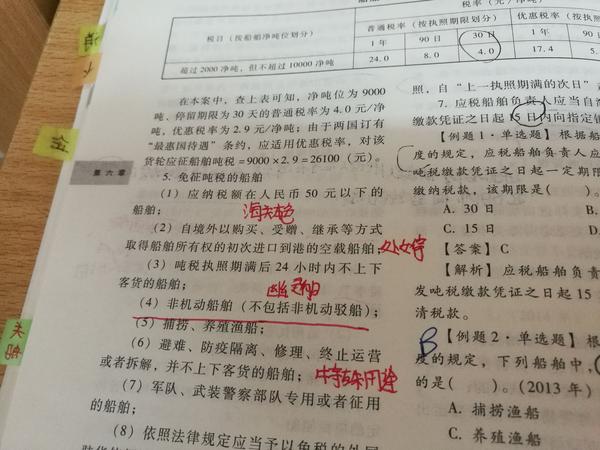 税率（元／净吨）
税目（按船舶净吨位划分）
普通税率（按执照期限划分）
优惠税率（按执
1年
90日
30日
1年
90
超过2000净吨，但不超过10000净吨
24.0
8.0
4.0
17.4
5.
在本案中，查上表可知，净吨位为9000
吨、停留期限为30天的普通税率为4.0元/净
吨，优惠税率为2.9元/净吨；由于两国订有
“最惠国待遇”条约，应适用优惠税率，对该
货轮应征船舶吨税=9000×2.9=26100（元）。
5. 免征吨税的船舶
（1）应纳税额在人民币50元以下的
船舶；
（2）自境外以购买、受赠、继承等方式
取得船舶所有权的初次进口到港的空载船舶；
（3）吨税执照期满后24小时内不上下
客货的船舶；
（4）非机动船舶（不包括非机动驳船）；
（5）捕捞、养殖渔船；
（6）避难、防疫隔离、修理、终止运营
或者拆解，并不上下客货的船舶；
（7）军队、武装警察部队专用或者征用
的船舶；
（8）依照法律规定应当予以免税的外国
第六章
照，自“上一执照期满的次日”
7. 应税船舶负责人应当自
缴款凭证之日起15日内向指定
【例题1·单选题】根据船
度的规定，应税船舶负责人应
吨税缴款凭证之日起一定期限
缴纳税款，该期限是（　　）。
A. 30日
B.
C. 15日
D.
【答案】C
【解析】应税船舶负责
发吨税缴款凭证之日起15
清税款。
B
【例题2·单选题】根
度的规定，下列船舶中，
的是（　　）。（2013年）
A. 捕捞渔船
C. 养殖渔船